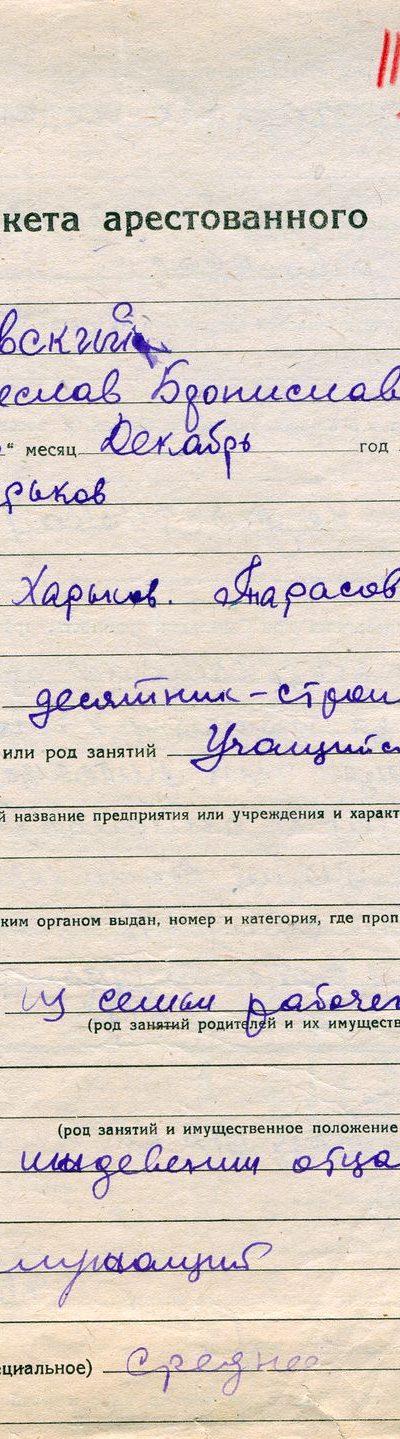 11
кета арестованного
вский
еслав Бронислав
“ месяц Декабрь год
рьков
Харьков. Тарасов
десятник-строи
или род занятий Учащийс
й название предприятия или учреждения и характ
ким органом выдан, номер и категория, где проп
из семьи рабочег
(род занятий родителей и их имуществ
(род занятий и имущественное положение
иждевении отца
служащий
ециальное) среднее